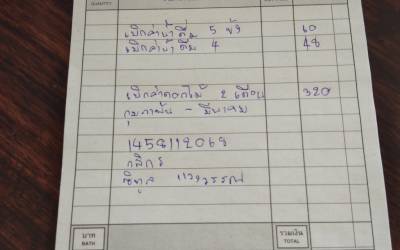 QUANTITY
เบิกค่าน้ำดื่ม 5 ขวด 60
เบิกค่าน้ำดื่ม 4 48
เบิกค่าดอกไม้ 2 เดือน 320
กุมภาพัน - มีนาคม
1458112068
กสิกร
บาท
BATH
รวมเงิน
TOTAL